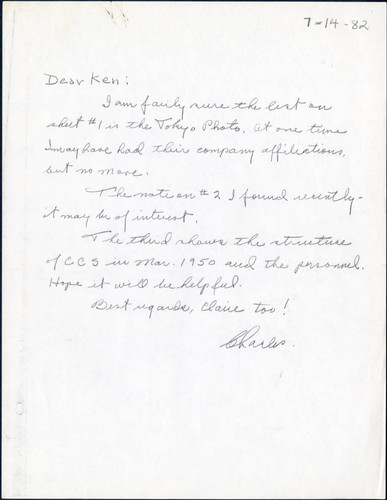 7-14-82
Dear Ken:
I am fairly sure the list on
sheet #1 is the Tokyo Photo. At one time
I may have had their company affiliations,
but no more.
The note on #2 I found recently -
it may be of interest.
The third shows the structure
of CCS in Mar. 1950 and the personnel.
Hope it will be helpful.
Best regards, Claire too!
Charles.